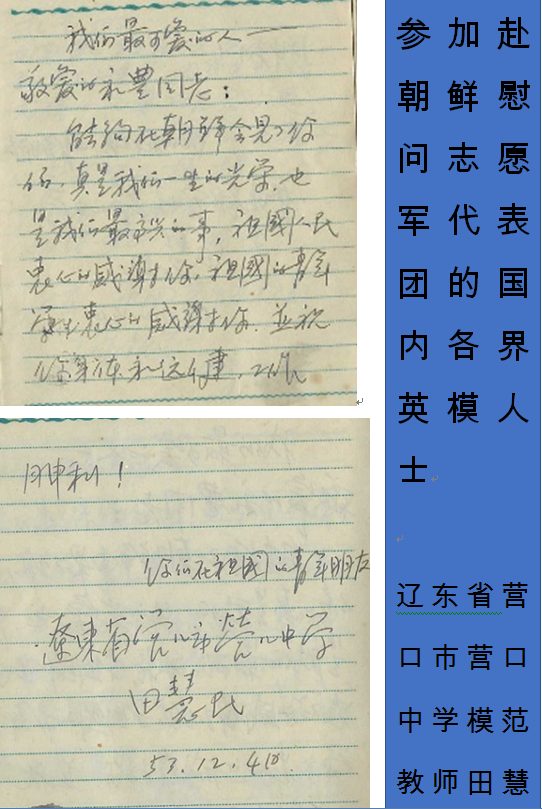 我们最可爱的人——
敬爱的 同志：
能夠在朝鲜会見了你
们，真是我们一生的光荣，也
是我们最高兴的事，祖國人民
衷心的感謝 你，祖國的青年
学生衷心的感謝 你，並祝
你身体永远健，工作
利！
你们在祖國的青年朋友
遼東省营口市营口中学
田慧民
53.12.4日.
参加赴
朝鲜慰
问志愿
军代表
团的国
内各界
英模人
士
辽东省营
口市营口
中学模范
教师田慧